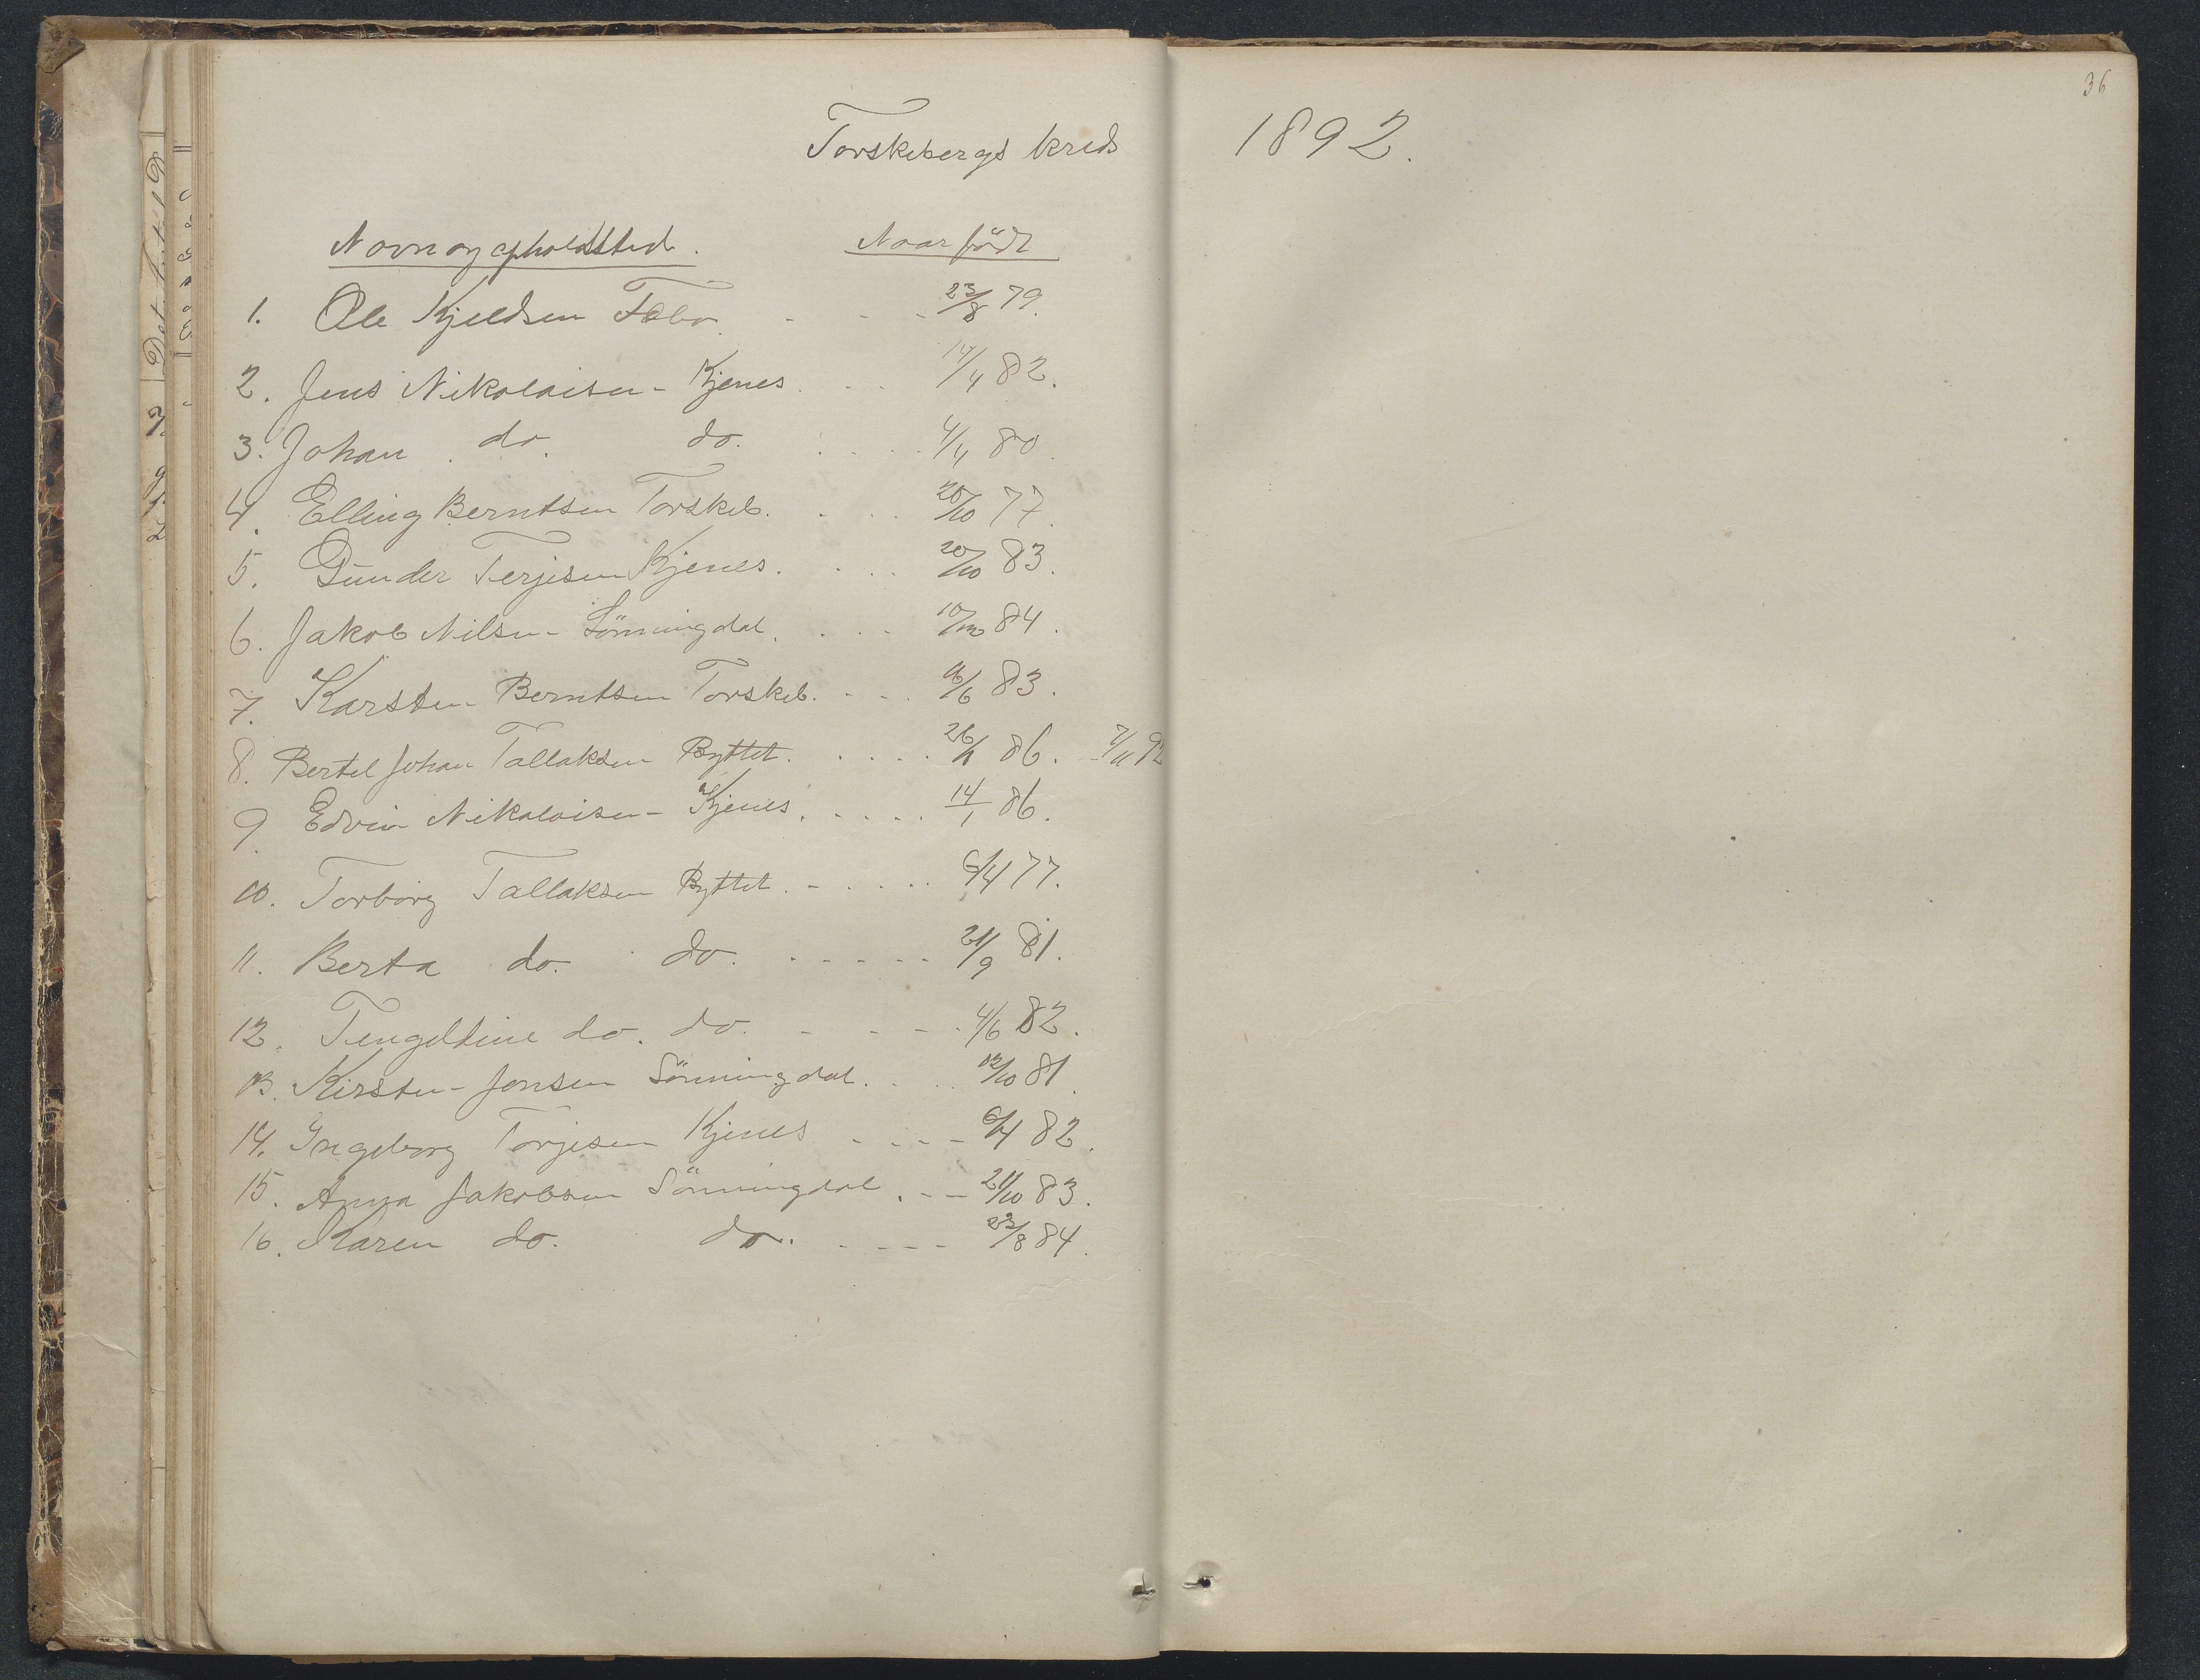 36
Torskebergs kreds 1892.
Navn og opholdssted. Naar födt
1. Ole Kjeldsen - - - 23/8 79.
2. Jens Nikolaisen - Kjenes . . . 14/4 82.
3. Johan do. do. . . . 4/4 80.
4. Elling Berntsen Torskeb. . . . 20/10 77.
5. Gunder Terjesen Kjenes. . . . 20/10 83.
6. Jakob Nilsen - Sönningdal. . . . 84.
7. Karsten Berntsen Torskeb. - - . 83.
8. Bertel Johan Tallaksen Byttet. . . . . 86. 92
9. Edvin Nikolaisen - Kjenes. . . . . 14/1 86.
10. Torborg Tallaksen Byttet. - . . . . 77.
11. Berta do. do. . - - - - 21/9 81.
12. Tengeltine do. do. - - - . 4/6 82.
13. Kirsten - Jensen Sönningdal. . . 81.
14. Ingeborg Torjesen Kjenes - - - - 82.
15. Anna Jakobsen Sönningdal. - - 21/10 83.
16. Karen do. do. . - - - 23/8 84.